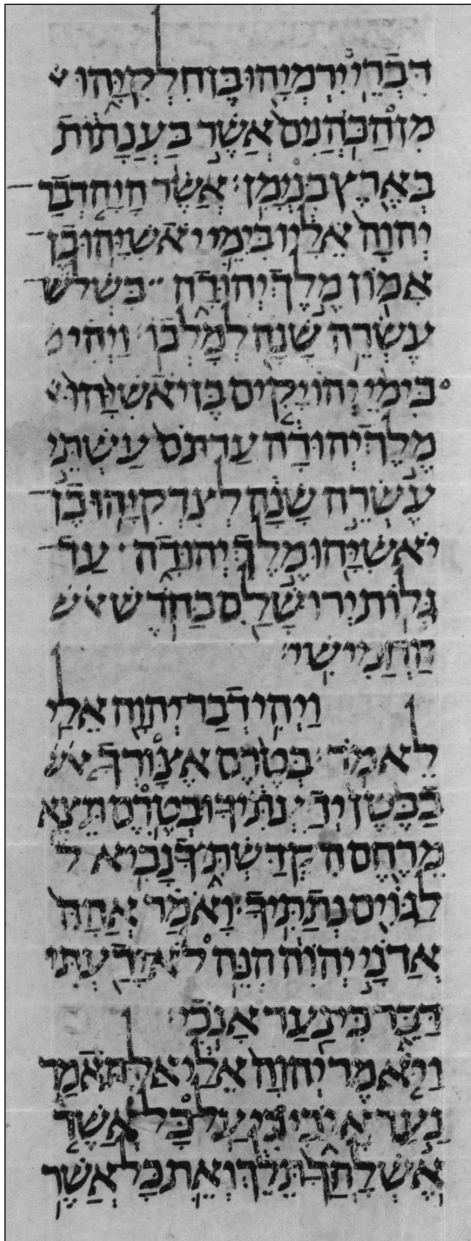 דִּבְרֵי יִרְמְיָהוּ בֶּן חִלְקִיָּהוּ
מִן הַכֹּהֲנִים אֲשֶׁר בַּעֲנָתוֹת
בְּאֶרֶץ בִּנְיָמִן׃ אֲשֶׁר הָיָה דְבַר
יְהוָה אֵלָיו בִּימֵי יֹאשִׁיָּהוּ בֶן
אָמוֹן מֶלֶךְ יְהוּדָה בִּשְׁלֹשׁ
עֶשְׂרֵה שָׁנָה לְמָלְכוֹ׃ וַיְהִי
בִּימֵי יְהוֹיָקִים בֶּן יֹאשִׁיָּהוּ
מֶלֶךְ יְהוּדָה עַד תֹּם עַשְׁתֵּי
עֶשְׂרֵה שָׁנָה לְצִדְקִיָּהוּ בֶן
יֹאשִׁיָּהוּ מֶלֶךְ יְהוּדָה עַד
גְּלוֹת יְרוּשָׁלַם בַּחֹדֶשׁ
הַחֲמִישִׁי׃
וַיְהִי דְבַר יְהוָה אֵלַי
לֵאמֹר׃ בְּטֶרֶם אֶצָּורְךָ
בַבֶּטֶן יְדַעְתִּיךָ וּבְטֶרֶם תֵּצֵא
מֵרֶחֶם הִקְדַּשְׁתִּיךָ נָבִיא
לַגּוֹיִם נְתַתִּיךָ׃ וָאֹמַר אֲהָהּ
אֲדֹנָי יְהוִה הִנֵּה לֹא יָדַעְתִּי
דַּבֵּר כִּי נַעַר אָנֹכִי׃
וַיֹּאמֶר יְהוָה אֵלַי אַל תֹּאמַר
נַעַר אָנֹכִי כִּי עַל כָּל אֲשֶׁר
אֶשְׁלָחֲךָ תֵּלֵךְ וְאֵת כָּל אֲשֶׁר